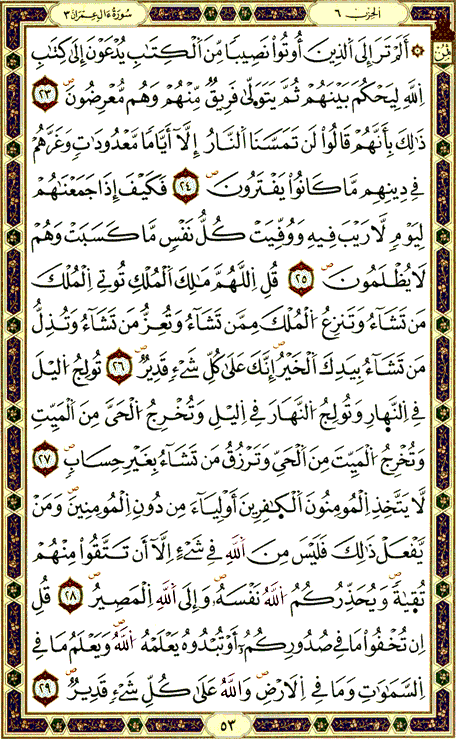 الحِزبُ ٦
سُورَةُ ءَالِ عِمْرَانَ ٣
ثُمُن
أَلَمْ تَرَ إِلَى اَلذِينَ أُوتُواْ نَصِيباً مِّنَ اَلْكِتَٰبِ يُدْعَوْنَ إِلَىٰ كِتَٰبِ
اِللَّهِ لِيَحْكُمَ بَيْنَهُمْ ثُمَّ يَتَوَلَّىٰ فَرِيقٌ مِّنْهُمْ وَهُم مُّعْرِضُونَۖ ٢٣
ذَٰلِكَ بِأَنَّهُمْ قَالُواْ لَن تَمَسَّنَا اَلنَّارُ إِلَّآ أَيَّاماً مَّعْدُودَٰتٖۖ وَغَرَّهُمْ
فِے دِينِهِم مَّا كَانُواْ يَفْتَرُونَۖ ٢٤ فَكَيْفَ إِذَا جَمَعْنَٰهُمْ
لِيَوْمٖ لَّا رَيْبَ فِيهِ وَوُفِّيَتْ كُلُّ نَفْسٖ مَّا كَسَبَتْ وَهُمْ
لَا يُظْلَمُونَۖ ٢٥ قُلِ اِللَّهُمَّ مَٰلِكَ اَلْمُلْكِ تُوتِے اِلْمُلْكَ
مَن تَشَآءُ وَتَنزِعُ اُلْمُلْكَ مِمَّن تَشَآءُۖ وَتُعِزُّ مَن تَشَآءُ وَتُذِلُّ
مَن تَشَآءُۖ بِيَدِكَ اَلْخَيْرُۖ إِنَّكَ عَلَىٰ كُلِّ شَےْءٖ قَدِيرٌۖ ٢٦ تُولِجُ اُليْلَ
فِے اِلنَّهارِ وَتُولِجُ اُلنَّهَارَ فِے اِليْلِۖ وَتُخْرِجُ اُلْحَيَّ مِنَ اَلْمَيِّتِ
وَتُخْرِجُ اُلْمَيِّتَ مِنَ اَلْحَيِّۖ وَتَرْزُقُ مَن تَشَآءُ بِغَيْرِ حِسَابٖۖ ٢٧
لَّا يَتَّخِذِ اِلْمُومِنُونَ اَلْكٰ۪فِرِينَ أَوْلِيَآءَ مِن دُونِ اِلْمُومِنِينَۖ وَمَنْ
يَّفْعَلْ ذَٰلِكَ فَلَيْسَ مِنَ اَللَّهِ فِے شَےْءٍ اِلَّآ أَن تَتَّقُواْ مِنْهُمْ
تُقَيٰةٗۖ وَيُحَذِّرُكُمُ اُللَّهُ نَفْسَهُۥۖ وَإِلَى اَللَّهِ اِلْمَصِيرُۖ ٢٨ قُلِ
اِن تُخْفُواْ مَا فِے صُدُورِكُمُۥٓ أَوْ تُبْدُوهُ يَعْلَمْهُ اُللَّهُۖ وَيَعْلَمُ مَا فِے
اِلسَّمَٰوَٰتِ وَمَا فِے اِلَارْضِۖ وَاللَّهُ عَلَىٰ كُلِّ شَےْءٖ قَدِيرٌۖ ٢٩
٥٣